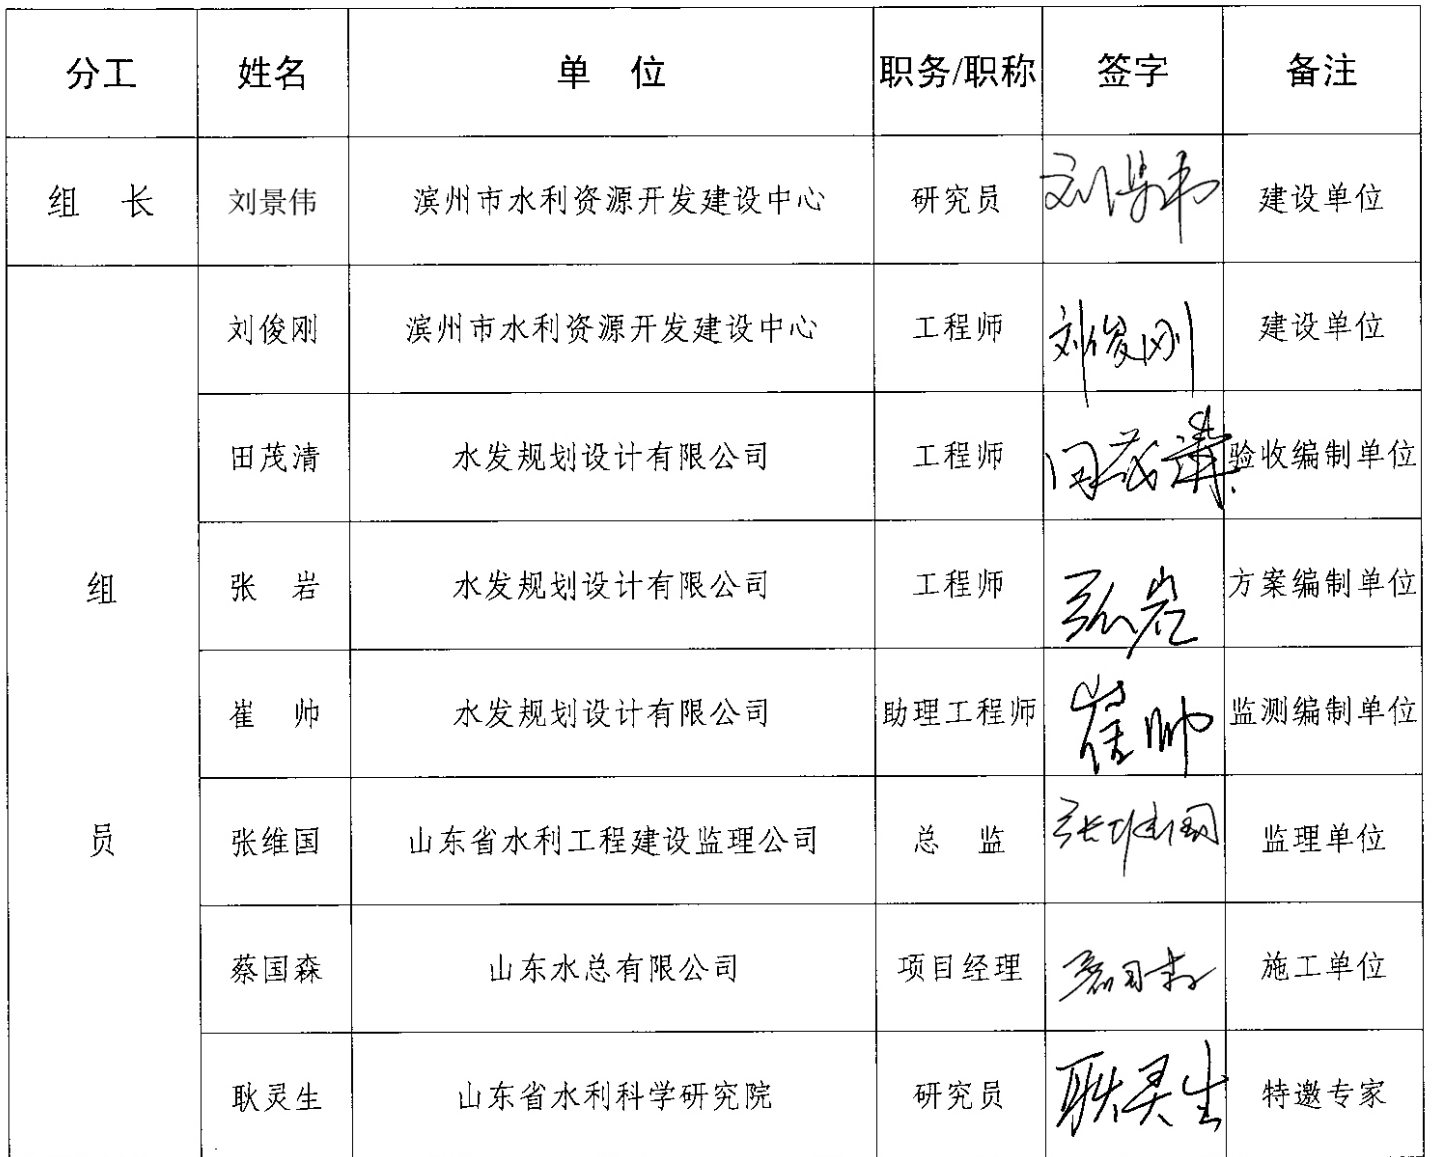 分工 姓名 单 位 职务/职称 签字 备注
组 长 刘景伟 滨州市水利资源开发建设中心 研究员 刘景伟 建设单位
刘俊刚 滨州市水利资源开发建设中心 工程师 刘俊刚 建设单位
田茂清 水发规划设计有限公司 工程师 田茂清 验收编制单位
组 张 岩 水发规划设计有限公司 工程师 张岩 方案编制单位
崔 帅 水发规划设计有限公司 助理工程师 崔帅 监测编制单位
员 张维国 山东省水利工程建设监理公司 总 监 张维国 监理单位
蔡国森 山东水总有限公司 项目经理 蔡国森 施工单位
耿灵生 山东省水利科学研究院 研究员 耿灵生 特邀专家